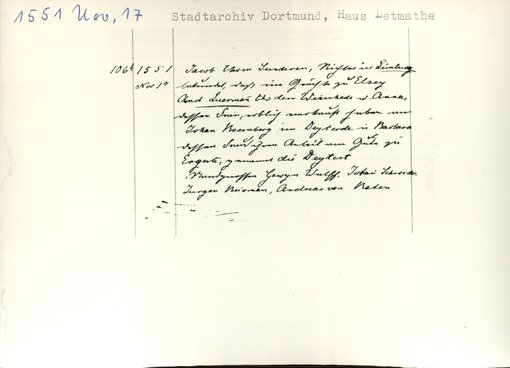 1551 Nov, 17 Stadtarchiv Dortmund, Haus Letmathe
106b 1551 Jacob thom Sunderen, Richter in Limburg
Nov 17 bekundet, daß im Gericht zu Elsey
And Luerman tho den Wienhede u. Anna,
dessen Frau, erblich verkauft haben an
Johan Rosenberg im Deyterde u. Barbara
dessen Frau ihren Anteil am Gute zu
Ergste, genannt die Deytert
Wulff, Johan
Jurgen Reinman, Andreas von Raten